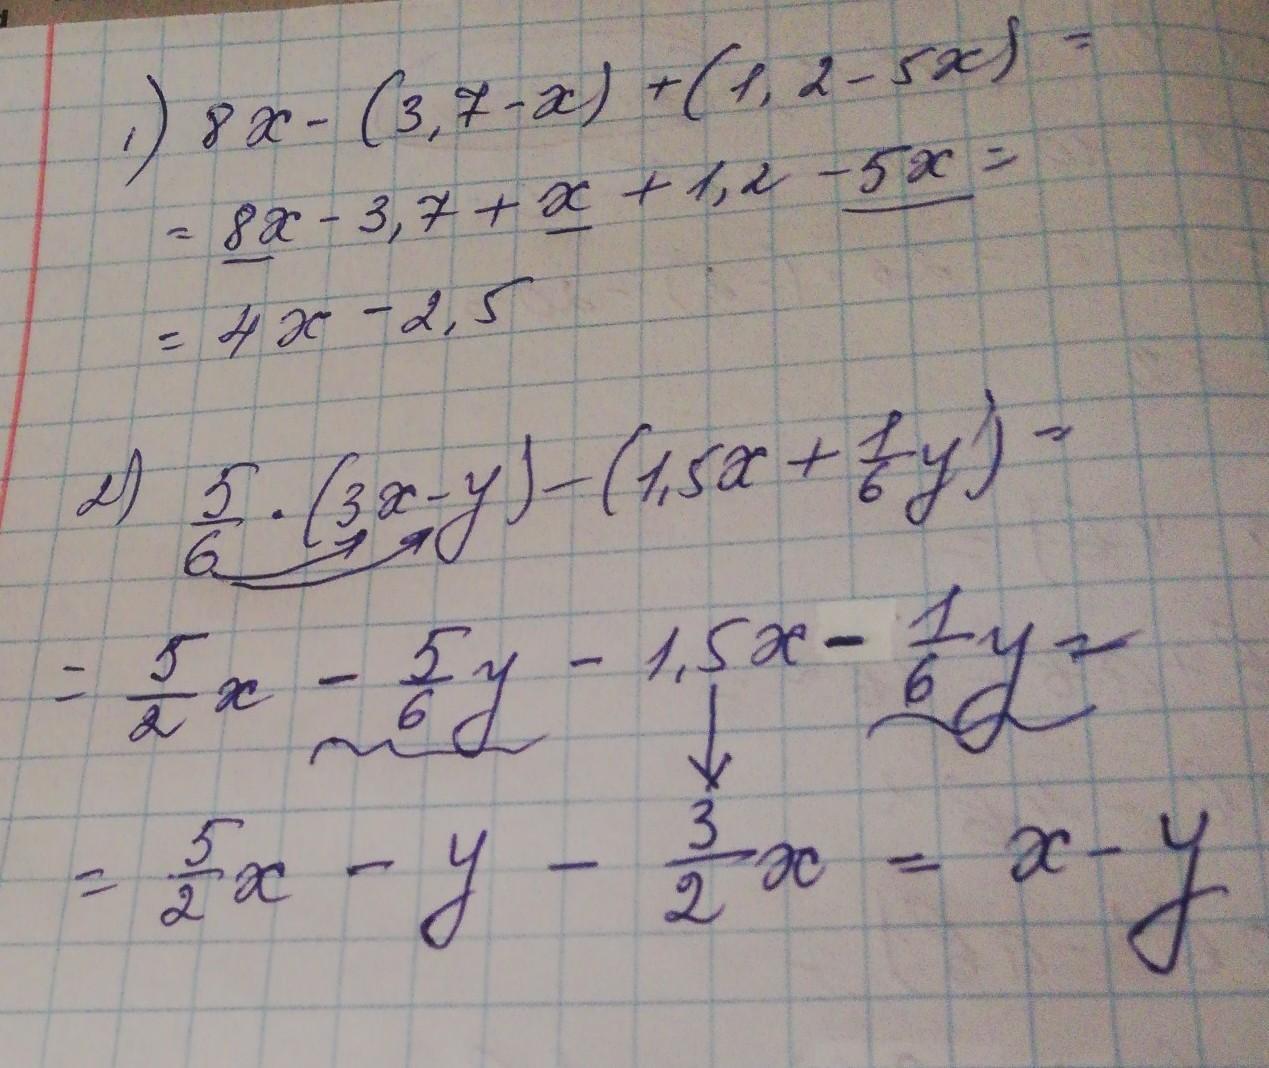 1) 8x - (3,7 - x) + (1,2 - 5x) =
= 8x - 3,7 + x + 1,2 - 5x =
= 4x - 2,5
2) 5/6 · (3x - y) - (1,5x + 1/6 y) =
= 5/2 x - 5/6 y - 1,5x - 1/6 y =
= 5/2 x - y - 3/2 x = x - y